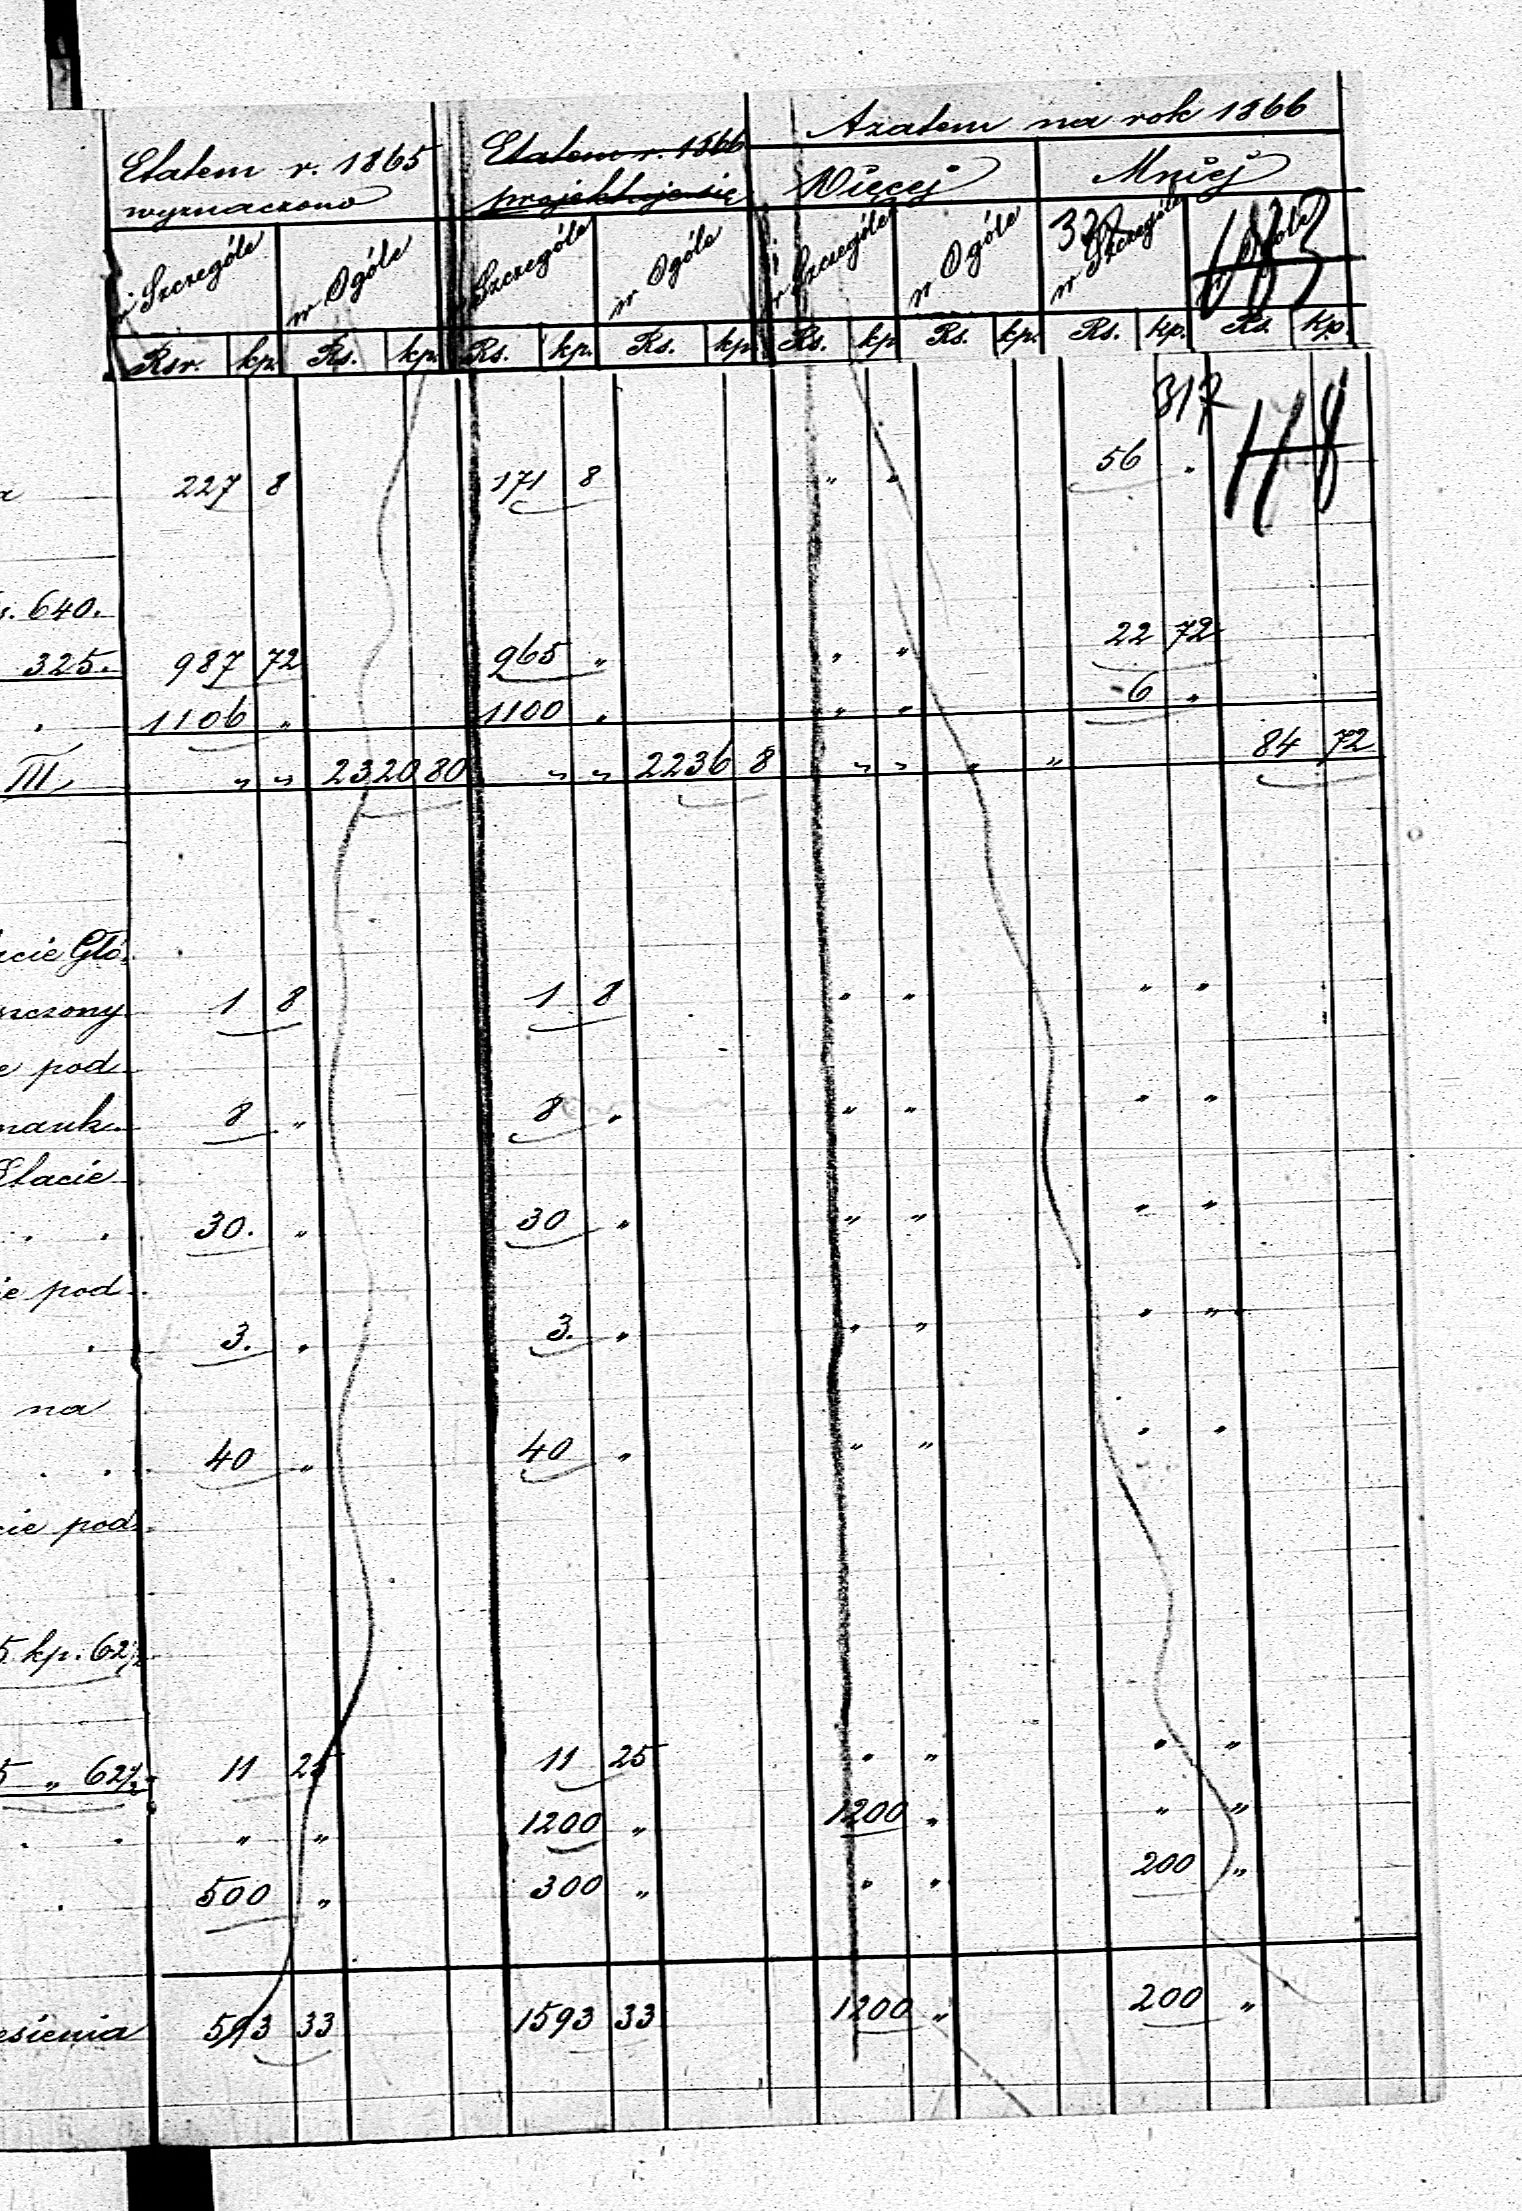 Azatem na rok 1866
Etatem r. 1865 Etatem r. 1866
wyznaczono projektuje się Więcej Mniéj
w Szczególe w Ogóle w Szczególe w Ogóle w Szczególe w Ogóle w Szczególe w Ogóle
Rsr. kp. Rs. kp. Rs. kp. Rs. kp. Rs. kp. Rs. kp. Rs. kp. Rs. kp.
317
227 8 171 8 " " 56 "
640.
325. 987 72 965 " " " 22 72
. 1106 " 1100 " " " 6 "
III " " 2320 80 " " 2236 8 " " " " 84 72
acie Głó
szczony 1 8 1 8 " " " "
e pod
nauk 8 " 8 " " " " "
Etacie
. . 30. " 30 " " " " "
ie pod
. 3. " 3. " " " " "
na
. . 40 " 40 " " " " "
cie pod
5 kp. 62½
5 " 62½ 11 25 11 25 " " " "
. . " " 1200 " 1200 " " "
. 500 " 300 " " " 200 "
esienia 593 33 1593 33 1200 " 200 "